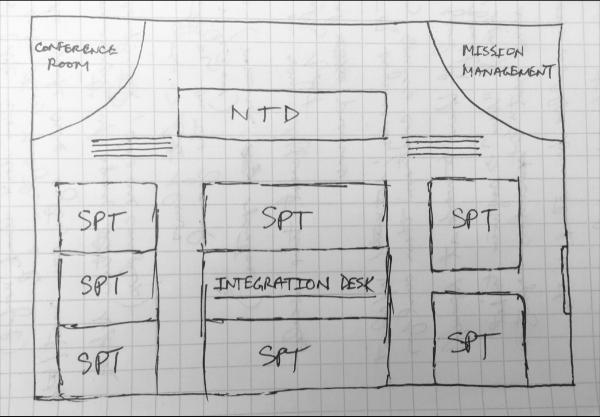 CONFERENCE
ROOM
MISSION
MANAGEMENT
NTD
SPT
SPT
SPT
SPT
INTEGRATION DESK
SPT
SPT
SPT
SPT